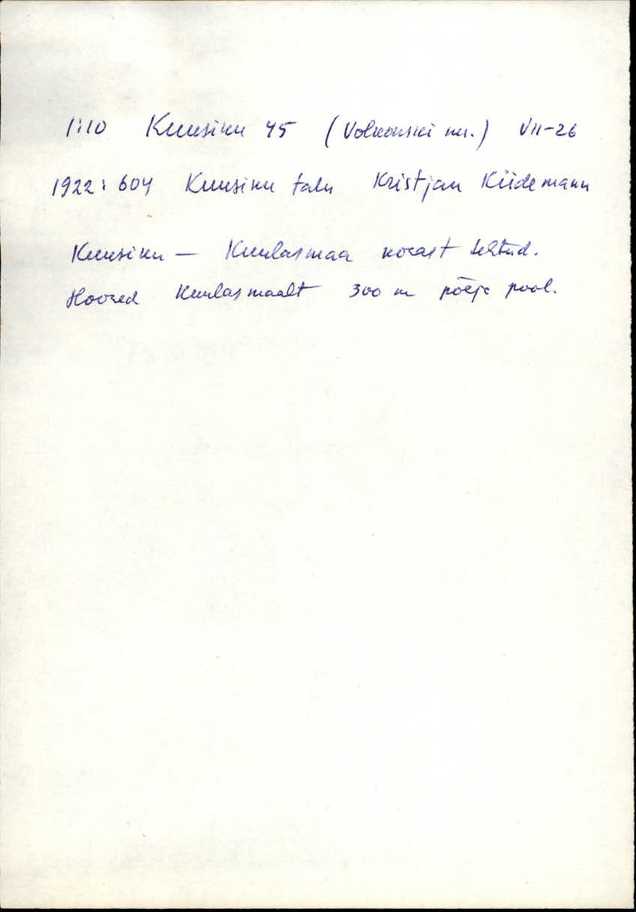 1:10 Kuusiku 45 (Volkonski mõ.) VII-26
1922: 604 Kuusiku talu Kristjan Küdemann
Kuusiku — Kuulasmaa kocast tehtud.
Hooned Kuulasmaalt 300 m põhja pool.